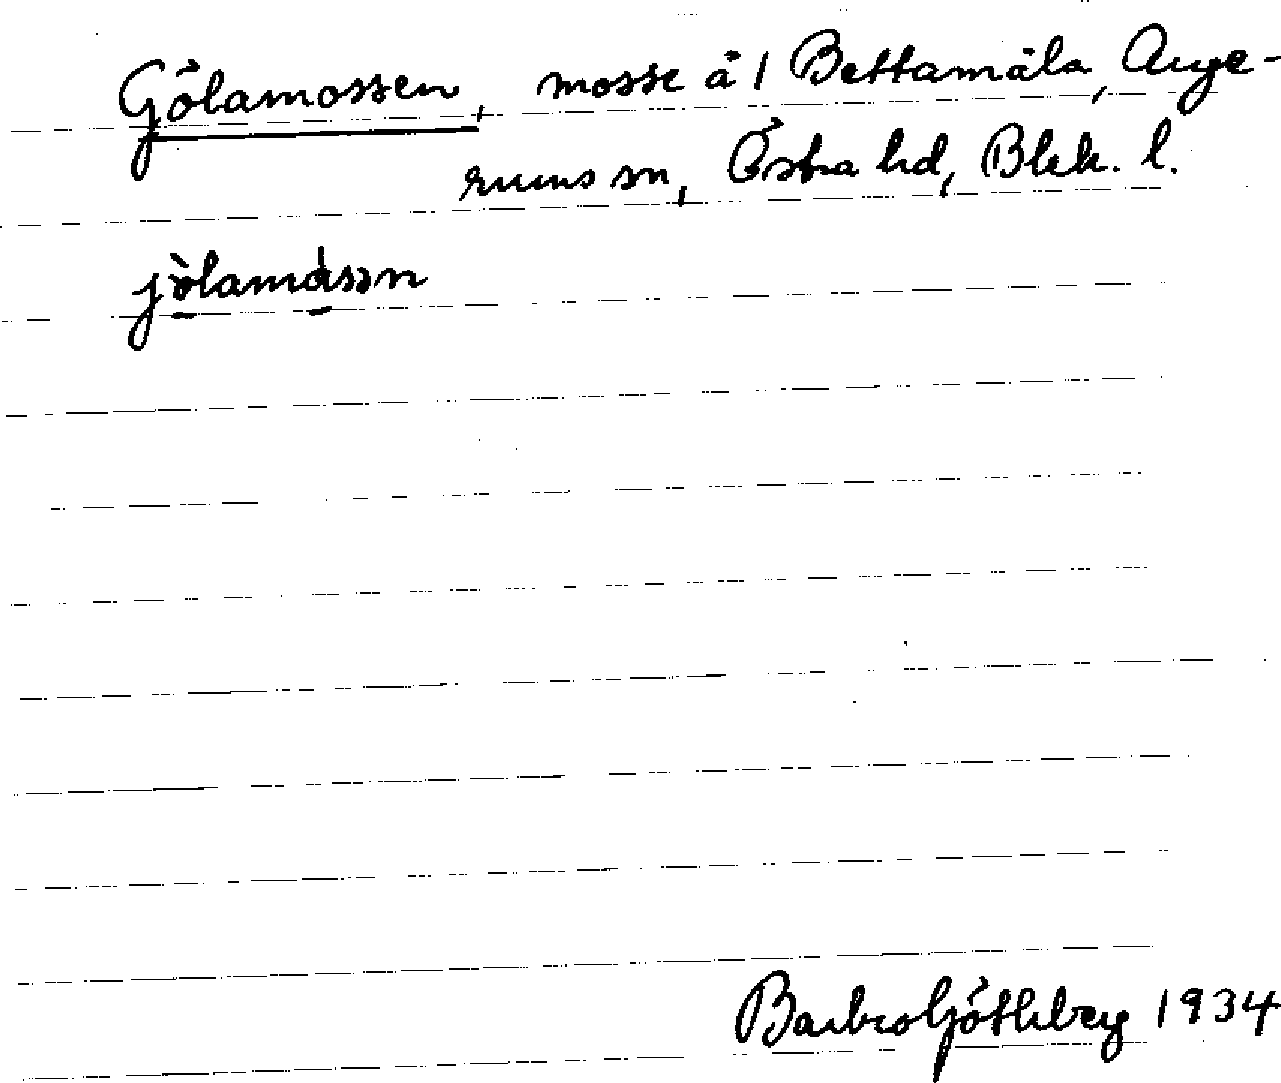 Gölamossen, mosse å 1 Bettamåla, Auge-
rums sn, Östra hd, Blek. l.
jòlamåsən
Barbro Göthberg 1934